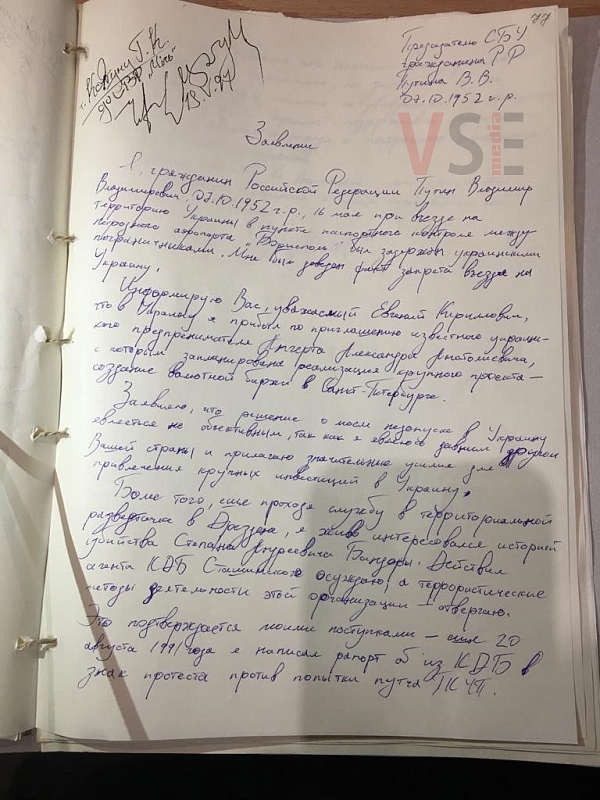 77
Председателю СБУ
гражданина Р.Ф
Путина В.В.
07.10.1952 г.р.
г. Г.К.
VSE
media
Заявление
Я, гражданин Российской Федерации Путин Владимир
Владимирович 07.10.1952 г.р., 16 мая при въезде на
территорию Украины в пункте паспортного контроля между
народного аэропорта "Борисполь" был задержан украинскими
пограничниками. Мне был доведен факт запрета въезда на
Украину.
Информирую Вас, уважаемый Евгений Кирилович,
что в Украину я прибыл по приглашению известного украин-
кого предпринимателя Ангерта Александра Анатолиевича,
с которым запланирована реализация крупного проекта —
создание валютной биржи в Санкт-Петербурге.
Заявляю, что решение о моем незапуске в Украину
евляеться не объективным, так как я евляюсь давним другом
Вашей страны и прилагаю значительные усилие для
привлечения кручных инвестиций в Украину.
Более того, еще проходя службу в территориальной
разведточке в Дрездене, я живо интересовался историей
убийства Степана Андреевича Бандеры. Действия
агента КДБ Сташинского осуждаю, а террористические
методы деятельности этой организации — отвергаю.
Это подтверждается моими поступками — еще 20
августа 1991 года е написал рапорт об из КДБ в
знак протеста против попытки путча ГКЧП.